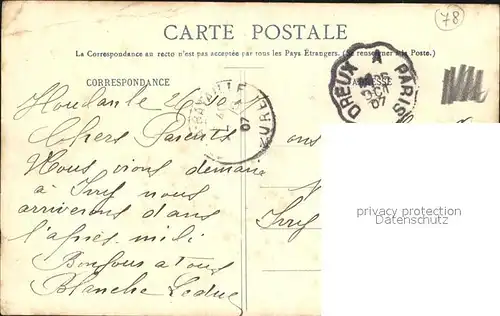 78
CARTE POSTALE
La Correspondance au recto n'est pas acceptée par tous les Pays Étrangers. (Se renseigner à la Poste.)
CORRESPONDANCE
DREUX A PARIS
OCT
07
EURE
07
Houdan le
Chers Parents
Nous vious demain
à Ivry nous
arriverons dans
l'après midi
Bonjour a tous
Blanche Leduc
ons
Ivry
privacy protection
Datenschutz